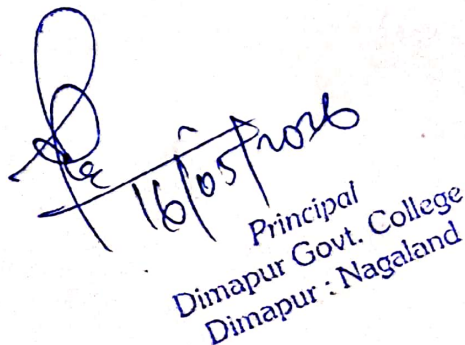 16/05/2026
Principal
Dimapur Govt. College
Dimapur : Nagaland